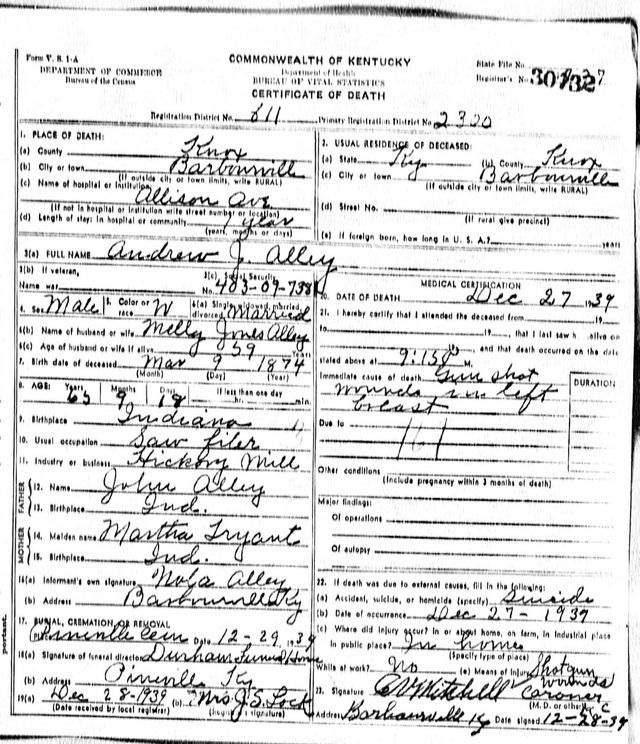 Form V. S. 1-A
DEPARTMENT OF COMMERCE
Bureau of the Census
COMMONWEALTH OF KENTUCKY
Department of Health
BUREAU OF VITAL STATISTICS
CERTIFICATE OF DEATH
State File No.
Registrar's No.
Registration District No. 611 Primary Registration District No. 2320
1. PLACE OF DEATH:
(a) County Knox
(b) City or town Barbourville
(If outside city or town limits, write RURAL)
(c) Name of hospital or institution Allison Ave
(If not in hospital or institution write street number or location)
(d) Length of stay: In hospital or community 1 year
(years, months or days)
2. USUAL RESIDENCE OF DECEASED:
(a) State Ky (b) County Knox
(c) City or town Barbourville
(If outside city or town limits, write RURAL)
(d) Street No.
(If rural give precinct)
(e) If foreign born, how long in U. S. A.? years
3(a) FULL NAME Andrew J. Alley
3(b) If veteran,
Name war
3(c) Social Security
No. 403-09-7381
4. Sex Male 5. Color or race W 6(a) Single, widowed, married, divorced Married
6(b) Name of husband or wife Melly Jones Alley
6(c) Age of husband or wife if alive 59 Years
7. Birth date of deceased Mar 9 1874
(Month) (Day) (Year)
8. AGE: Years 65 Months 9 Days 18 If less than one day
hr. min.
9. Birthplace Indiana
10. Usual occupation Saw filer
11. Industry or business Hickory Mill
FATHER
12. Name John Alley
13. Birthplace Ind.
MOTHER
14. Maiden name Martha Tryant
15. Birthplace Ind.
16(a) Informant's own signature Nola Alley
(b) Address Barbourville Ky
17. BURIAL, CREMATION OR REMOVAL
Pineville Cem Date 12-29 1939
18(a) Signature of funeral director Durham Funeral Home
(b) Address Pineville Ky
19(a) Dec 28-1939 (b) Mrs J.S. Lock
(Date received by local registrar) (Registrar's signature)
MEDICAL CERTIFICATION
20. DATE OF DEATH Dec 27 1939
21. I hereby certify that I attended the deceased from 19
to 19 , that I last saw h alive on
19 , and that death occurred on the date
stated above at 9:15 P M.
Immediate cause of death Gun shot
wounds in left
breast
DURATION
Due to
Other conditions
(Include pregnancy within 3 months of death)
Major findings:
Of operations
Of autopsy
22. If death was due to external causes, fill in the following:
(a) Accident, suicide, or homicide (specify) Suicide
(b) Date of occurrence Dec 27-1939
(c) Where did injury occur? In or about home, on farm, in industrial place
in public place? In home
(Specify type of place)
While at work? No (e) Means of injury Shotgun wounds
23. Signature CV Mitchell Coroner
(M. D. or other)
Address Barbourville Ky Date signed 12-28-39
portant.